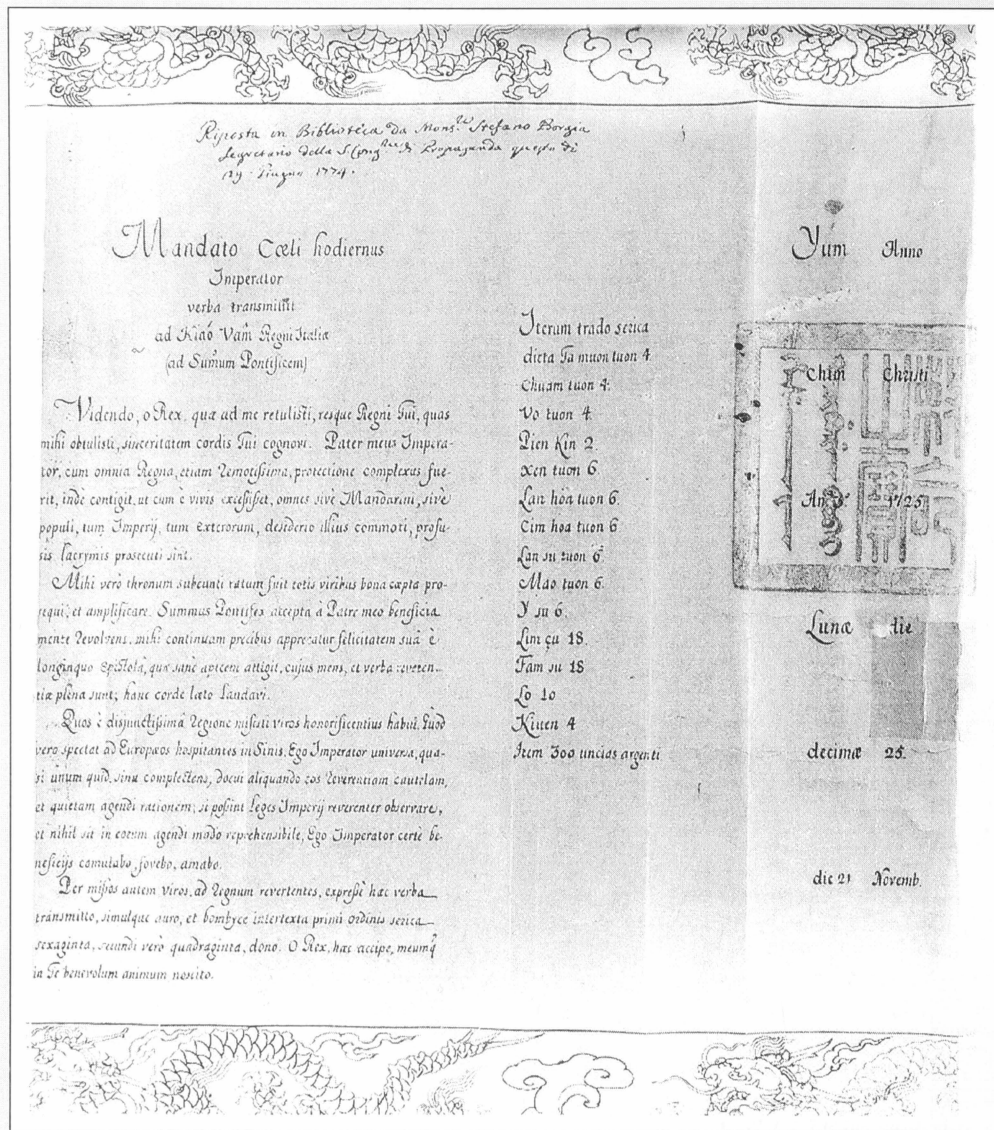 Riposta in Biblioteca da Mons.re Stefano Borgia
Segretario della S. Cong.ne di Propaganda questo dì
29 Giugno 1774.
Mandato Cœli hodiernus
Imperator
verba transmittit
ad Kiáo Vam̄ Regni Italiæ
(ad Sum̄um Pontificem)
Videndo, o Rex, quæ ad me retulisti, resque Regni Tui, quas
mihi obtulisti, sinceritatem cordis Tui cognovi. Pater meus Impera-
tor, cum omnia Regna, etiam remotissima, protectione complexus fue-
rit, indè contigit, ut cum è vivis excessisset, omnes sivè Mandarini, sivè
populi, tum Imperij, tum exterorum, desiderio illius commoti, profu-
sis lacrymis prosecuti sint.
Mihi verò thronum subeunti ratum fuit totis viribus bona cæpta pro-
sequi, et amplificare. Summus Pontifex accepta à Patre meo beneficia
mente revolvens, mihi continuam precibus apprecatur felicitatem suâ è
longinquo Epistolâ, quæ sanè apicem attigit, cujus mens, et verba reveren-
tiæ plena sunt; hanc corde læto laudavi.
Quos è disjunctissimâ Regione misisti viros honorificentius habui. Quod
vero spectat ad Europæos hospitantes in Sinis, Ego Imperator universa, qua-
si unum quid, sinu complectens, docui aliquando eos reverentiam cautelam,
et quietam agendi rationem; si possint leges Imperij reverenter observare,
et nihil sit in eorum agendi modo reprehensibile, Ego Imperator certè be-
neficijs comulabo, fovebo, amabo.
Per missos autem viros, ad Regnum revertentes, expressè hæc verba
transmitto, simulque auro, et bombyce intertexta primi ordinis serica
sexaginta, secundi verò quadraginta, dono. O Rex, hæc accipe, meumq̃
in Te benevolum animum noscito.
Iterum trado serica
dicta Ta muon tuon 4.
Chuam tuon 4.
Vo tuon 4
Pien Kin 2
Xen tuon 6.
Lan hòa tuon 6.
Cim hoa tuon 6
Lan su tuon 6
Mao tuon 6.
Y su 6.
Lim çu 18.
Fam su 18
Lo 10
Kiuen 4
Item 300 uncias argenti
Yum Anno
Chim Christi
An. 3. 1725
Lunæ die
decimæ 25.
die 21 Novemb.